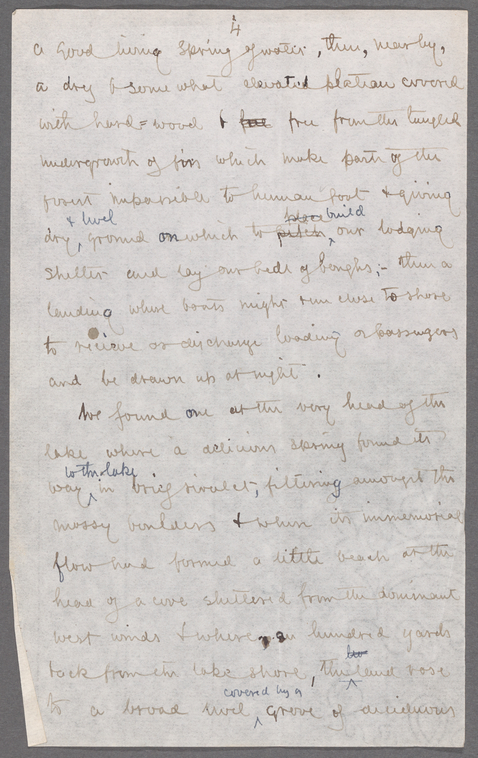 4
a good living spring of water, then, nearby,
a dry & somewhat elevated plateau covered
with hard=wood & free from the tangled
undergrowth of firs which make parts of the
forest impassible to human foot & giving
& level build
dry, ground on which to pitch our lodging
shelter and lay our beds of boughs;- then a
landing where boats might run close to shore
to recieve or discharge loading or passengers
and be drawn up at night.
We found one at the very head of the
lake where a delicious spring found its
to the lake
way in brig rivulet, filtering amongst the
mossy boulders & where its immemorial
flow had formed a little beach at the
head of a cove sheltered from the dominant
west winds & where, an hundred yards
back from the lake shore, the land rose
covered by a
to a broad level grove of deciduous